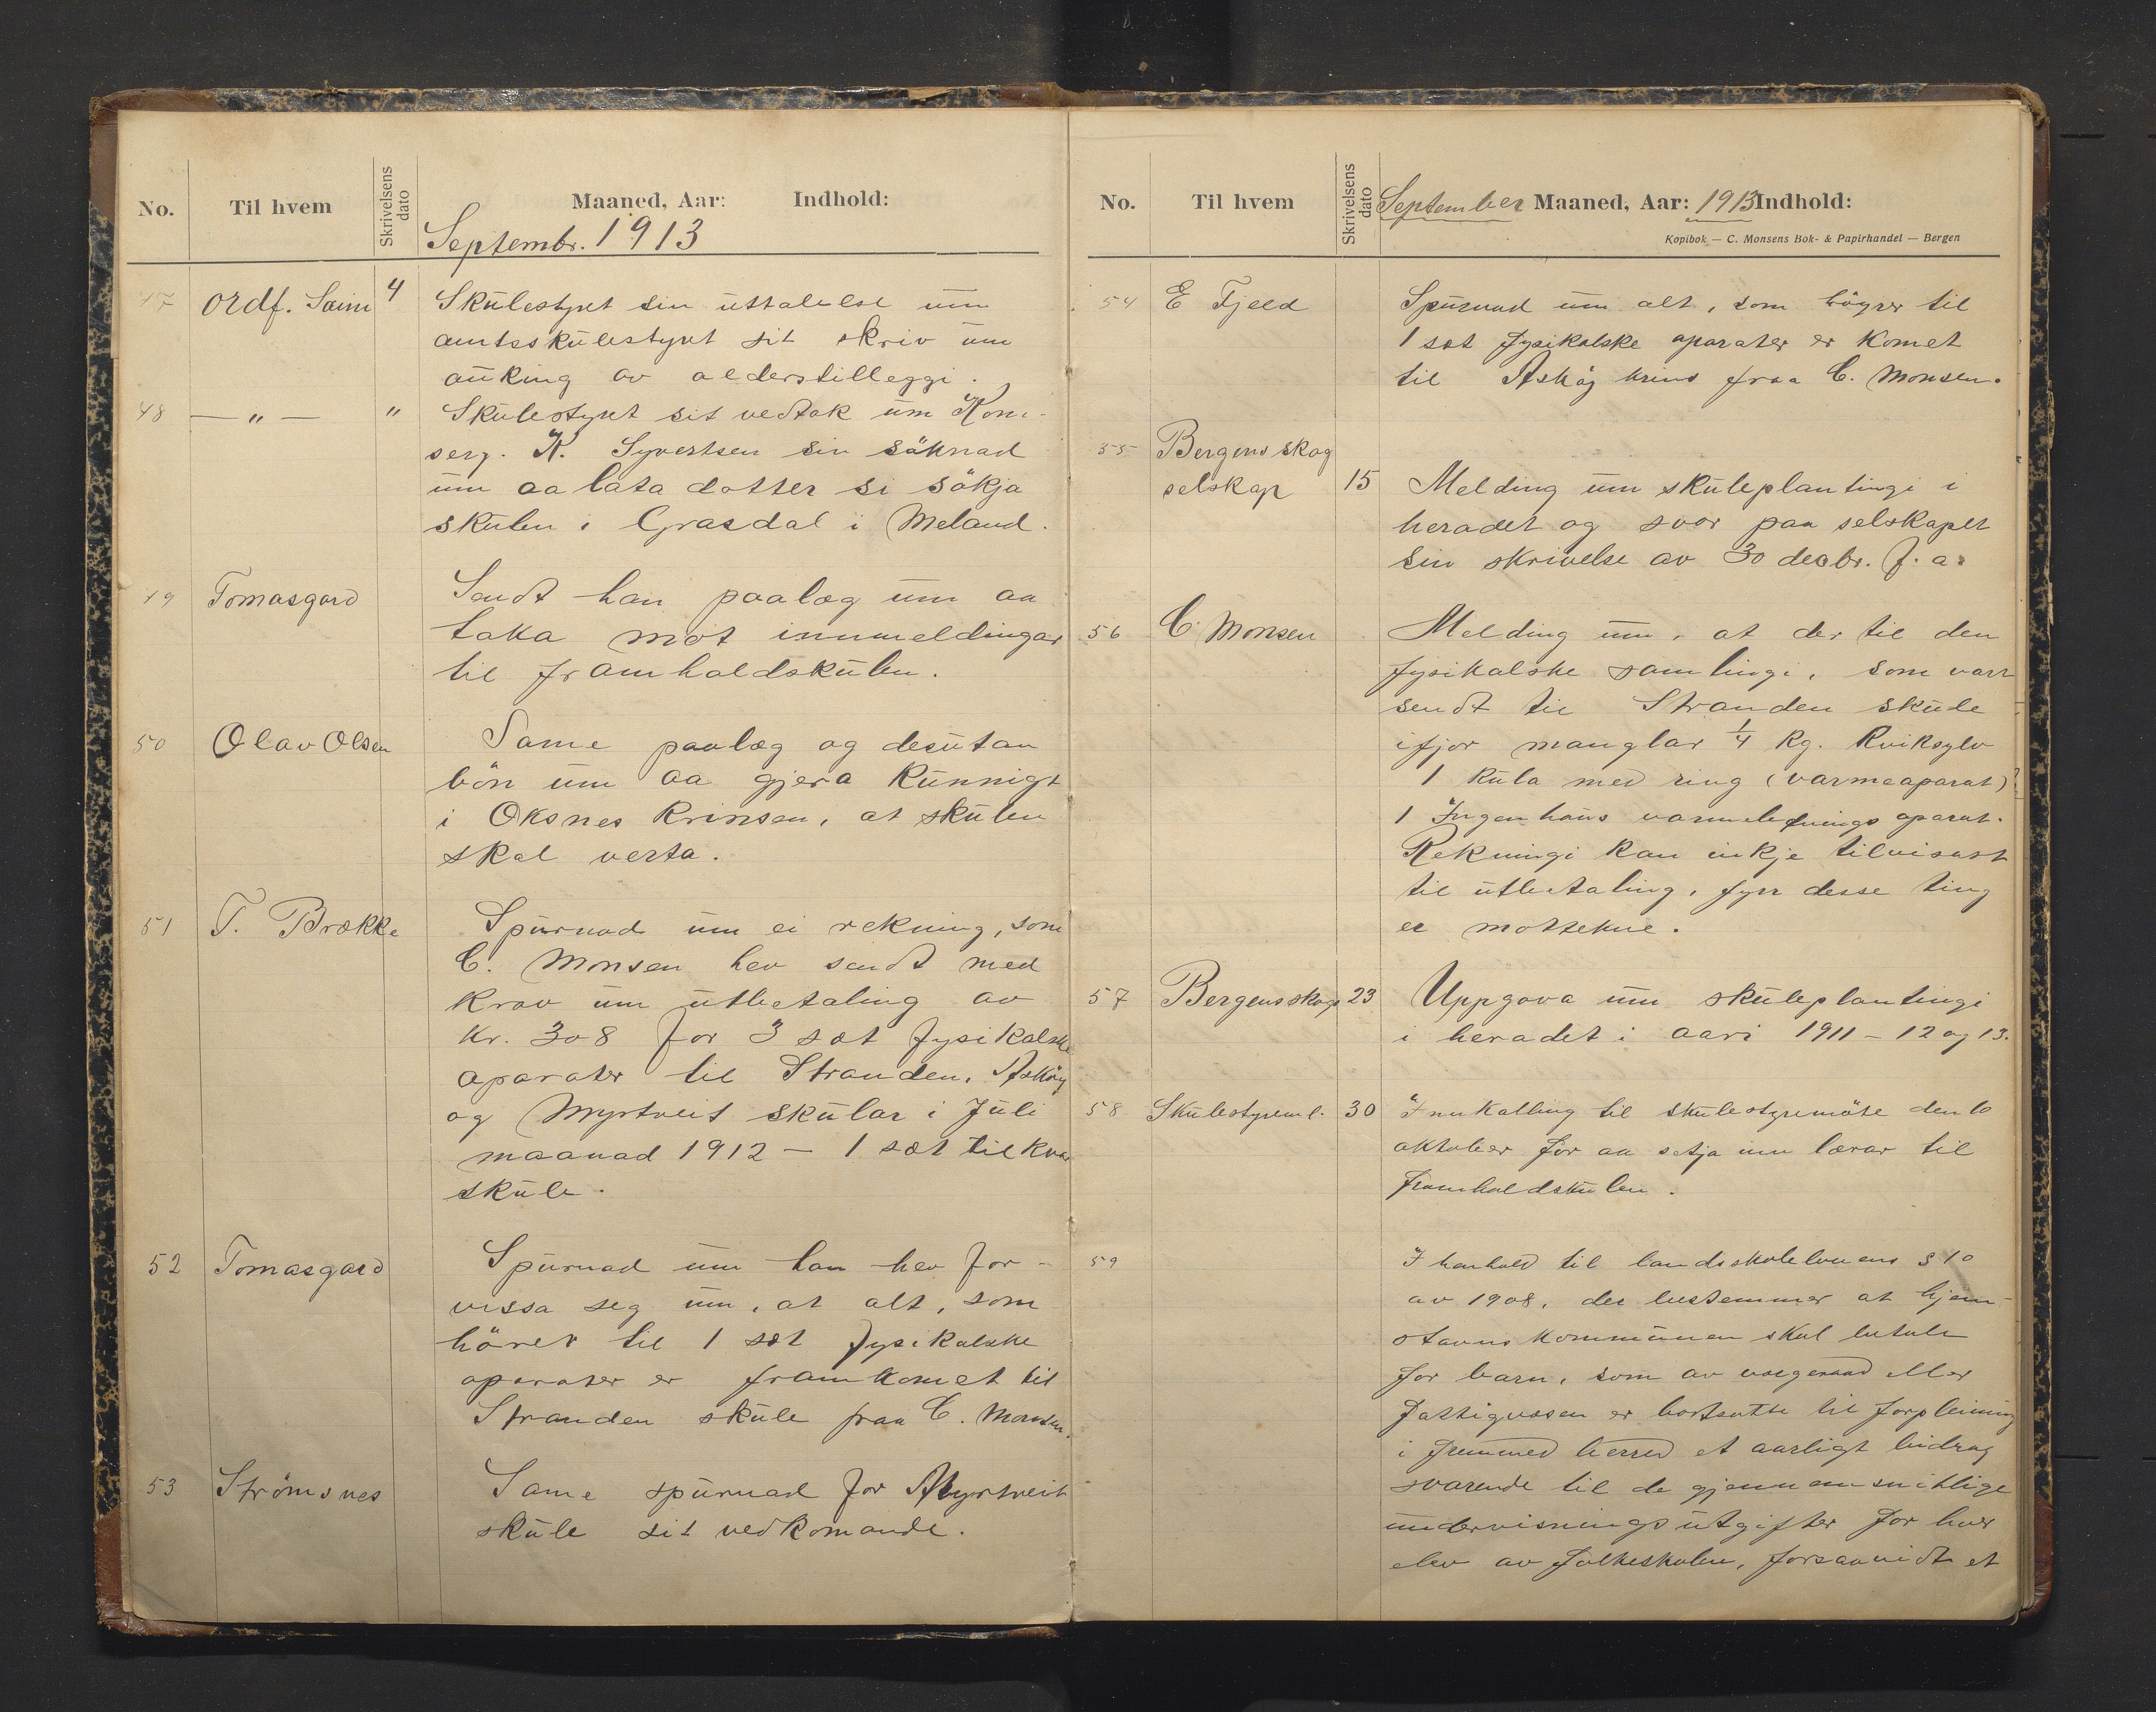 No. Til hvem Skrivelsens dato Maaned, Aar: Indhold:
Septembr. 1913
47 Ordf. Saim 4 Skulestyret sin uttalelse um
amtsskulestyret sit skriv um
auking av alderstilleggi.
48 — " — " Skulestyret sit vedtak um Kom-
serg. K. Syvertsen sin söknad
um aa lata dotter si sökja
skulen i Grasdal i Meland.
49 Tomasgard Sendt han paalæg um aa
taka mot innmeldingar
til framhaldskulen.
50 Olav Olsen Same paalæg og desutan
bön um aa gjera kunnigt
i Oksnes krinsen, at skulen
skal verta.
51 T. Brække Spurnad um ei rekning, som
C. Monsen hev sendt med
krav um utbetaling av
kr. 308 for 3 sæt fysikalske
aparater til Stranden, Asköy
og Myrtveit skular i Juli
maanad 1912 — 1 sæt til kvar
skule.
52 Tomasgard Spurnad um han hev for-
vissa seg um, at alt, som
hörer til 1 sæt fysikalske
aparater er framkomet til
Stranden skule fraa C. Monsen.
53 Strömsnes Same spurnad for Myrtveit
skule sit vedkomande.
No. Til hvem Skrivelsens dato September Maaned, Aar: 1913 Indhold:
Kopibok — C. Monsens Bok- & Papirhandel — Bergen
54 E Fjeld Spurnad um alt, som höyrer til
1 sæt fysikalske aparater er komet
til Askøy krins fraa C. Monsen.
55 Bergens skog
selskap 15 Melding um skuleplantingi i
heradet og svar paa selskapet
sin skrivelse av 30 decbr. f. a.
56 C. Monsen Melding um, at der til den
fysikalske samlingi, som vart
sendt til Stranden skule
ifjor manglar 1/4 kg. kviksylv
1 kula med ring (varmeaparat)
1 Ingenhaus varmelednings aparat.
Rekningi kan inkje tilvisast
til utbetaling, fyrr desse ting
er mottekne.
57 Bergens skogs 23 Uppgava um skuleplantingi
i heradet i aari 1911 – 12 og 13.
58 Skulestyreml. 30 Innkalling til skulestyremöte den 10
oktober for aa setja inn lærar til
framhaldskulen.
59 I henhold til landsskolelovens § 10
av 1908, der bestemmer at hjem-
stavnskommunen skal betale
for barn, som av vergeraad eller
Fattigvæsen er bortsatte til forpleining
i fremmed herred et aarligt bidrag
svarende til de gjennemsnitlige
undervisningsutgifter for hver
elev av folkeskolen, forsaavidt et